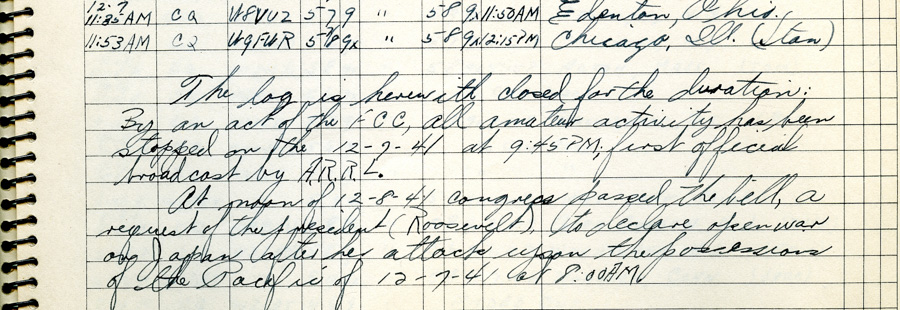 12-7
11:35 AM CQ W8VUZ 579 " 589x 11:50AM Edenton, Ohio.
11:53 AM CQ W9FWR 589x " 589x 12:15PM Chicago, Ill. (Stan)
The log is herewith closed for the duration:
By an act of the FCC, all amateur activity has been
stopped on the 12-7-41 at 9:45 PM, first official
broadcast by A.R.R.L.
At noon of 12-8-41 congress passed the bill, a
request of the president (Roosevelt), to declare open war
on Japan after her attack upon the possessions
of the Pacific of 12-7-41 at 8:00AM.